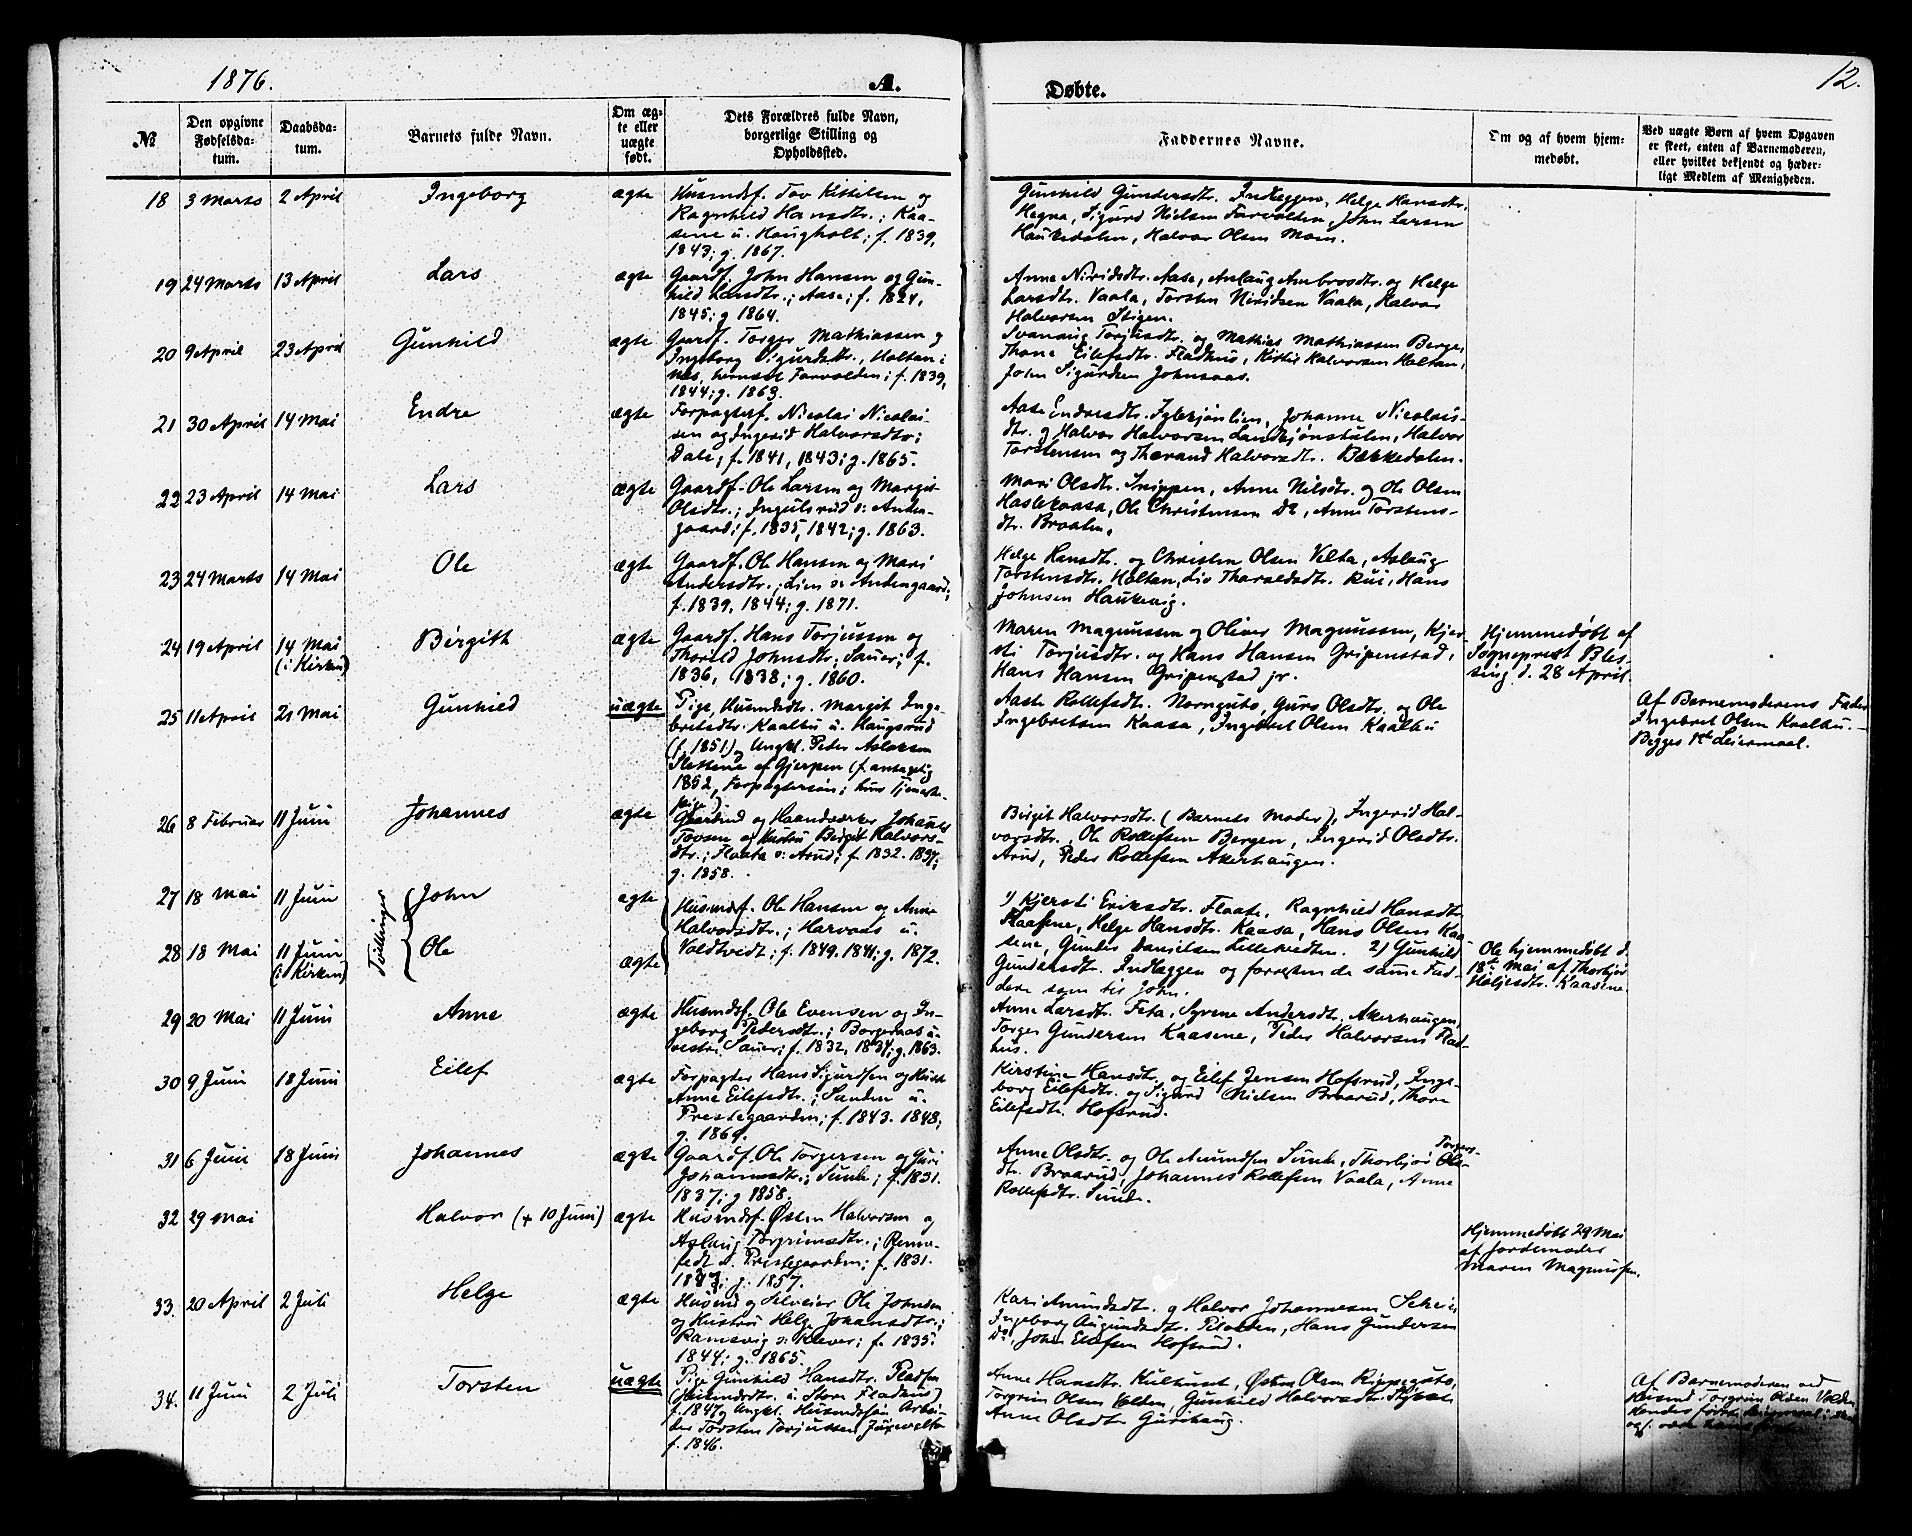 1876.
A.
Døbte.
12.
№
Den opgivne Fødselsdatum.
Daabsdatum.
Barnets fulde Navn.
Om ægte eller uægte født.
Dets Forældres fulde Navn, borgerlige Stilling og Opholdssted.
Faddernes Navne.
Om og af hvem hjemmedøbt.
Ved uægte Børn af hvem Opgaven er skeet, enten af Barnemoderen, eller hvilket bekjendt og hæderligt Medlem af Menigheden.
18 3 Marts 2 April Ingeborg ægte Husmdsf. Tov Kittilsen og
Ragnhild Hansdtr.; Kaa-
sene u. Haugholt; f. 1839,
1843; g. 1867.
Gunhild Gundersdtr. Indlæggen, Helge Hansdtr.
Hegna, Sigurd Nielsen Farvolden, John Larsen
Haukedalen, Halvor Olsen Moen.
19 24 Marts 13 April Lars ægte Gaardf. John Hansen og Gun-
hild Larsdtr.; Aase; f. 1824,
1845; g 1864.
Anne Niridsdtr. Aase, Aslaug Ambrosdtr. og Helge
Larsdtr. Vaala, Torsten Niridsen Vaala, Halvor
Halvorsen Stigen.
20 9 April 23 April Gunhild ægte Gaardf. Torger Mathiassen og
Ingeborg Sigurdsdtr., Holtan i
Hes, Farvolden; f. 1839,
1844; g. 1863.
Svanaug Torjusdtr. og Mathias Mathiassen Berge,
Thone Eilefsdtr. Fladhus, Kittil Halvorsen Holtan,
John Sigurdsen Johnsaas.
21 30 April 14 Mai Endre ægte Forpagterf. Nicolai Nicolai-
sen og Ingerid Halvorsdtr.;
Dale; f. 1841, 1843; g. 1865.
Aase Endresdtr. Johanne Nicolais-
dtr. og Halvor Halvorsen Halvor
Torstensen og Tharand Halvorsdtr. Bækkedalen.
22 23 April 14 Mai Lars ægte Gaardf. Ole Larsen og Margit
Olsdtr.; Ingulsrud v: Anden-
gaard; f. 1835, 1842; g. 1863.
Mari Olsdtr. Snippen, Anne Nilsdtr. og Ole Olsen
Haslekaasa, Ole Christensen Do, Anne Torstens-
dtr. Braaten.
23 24 Marts 14 Mai Ole ægte Gaardf. Ole Hansen og Mari
Andersdtr.; Lien v: Andengaard;
f. 1839, 1844; g. 1871.
Helge Hansdtr. og Christen Olsen Velta, Aslaug
Torstensdtr. Holtan, Liv Tharaldsdtr. Rui, Hans
Johnsen Haukevig.
24 19 April 14 Mai (i Kirken) Birgith ægte Gaardf. Hans Torjussen og
Thorild Johnsdtr.; Sauer; f.
1836, 1838; g. 1860.
Maren Magnussen og Oliver Magnussen, Kjer-
sti Torjusdtr. og Hans Hansen Gripenstad,
Hans Hansen Gripenstad jr.
Hjemmedøbt af
Sogneprest Bles-
sing d. 28 April.
25 11 April 21 Mai Gunhild uægte Pige, Husmdsdtr. Margit Inge-
bretsdtr. Kaalhu u. Haugsrud
(f. 1851) og Ungkl. Peder Aslaksen
Slettene af Gjerpen (f. antagelig
1852, Forpagtersøn; hun Tjeneste-
pige).
Aaste Rollefsdtr. Nornguto, Guro Olsdtr. og Ole
Ingebretsen Kaasa, Ingebret Olsen Kaalhu
Af Barnemoderens Fader
Ingebret Olsen Kaalhu. -
Begges 1ste Leiermaal.
26 8 Februar 11 Juni Johannes ægte Gaardmd og Haandværker Johannes
Tovsen og Hustru Birgit Halvors-
dtr.; Flaata v: Aarud; f. 1832. 1834;
g. 1858.
Birgit Halvorsdtr. (Barnets Moder), Ingerid Hal-
vorsdtr., Ole Rollefsen Bergen, Ingerid Olsdtr.
Arud, Peder Rollefsen Akerhaugen.
27 18 Mai 11 Juni Tvillinger John ægte Husmdsf. Ole Hansen og Anne
Halvorsdtr.; Harvaas u.
28 18 Mai 11 Juni (i Kirken) Ole ægte Valdtvedt; f. 1849. 1841; g. 1872.
1) Kjersti Eriksdtr. Flaata, Ragnhild Hansdtr.
Kaasene, Helge Hansdtr. Kaasa, Hans Olsen Kaa-
sene, Gunder Danielsen Lillekvedten. 2) Gunhild
Gundersdtr. Indlæggen og forresten de samme Fad-
dere som til John.
Ole hjemmedøbt d.
18de Mai af Thorbjør
Høljesdtr. Kaasene.
29 20 Mai 11 Juni Anne ægte Husmdsf. Ole Evensen og In-
geborg Pedersdtr.; Borgernas u.
vestre Sauer; f. 1832, 1834; g. 1863.
Anne Larsdtr. Feta, Syrene Andersdtr. Akerhaugen,
Torger Gundersen Kaasene, Peder Halvorsen Flad-
hus.
30 9 Juni 18 Juni Eilef ægte Forpagter Hans Sigurdsen og Hust.
Anne Eilefsdtr.; Sanden u.
Prestegaarden; f. 1843. 1848;
g. 1869.
Kirstine Hansdtr. og Eilef Jensen Hofsrud, Inge-
borg Eilefsdtr. og Sigurd Nielsen Braarud, Thore
Eilefsdtr. Hofsrud.
31 6 Juni 18 Juni Johannes ægte Gaardf. Ole Torgersen og Guri
Johannesdtr.; Sunde; f. 1831.
1837; g 1858.
Anne Olsdtr. og Ole Amundsen Sunde, Thorbjør Torgers-
dtr. Braarud, Johannes Rollefsen Vaala, Anne
Rollefsdtr. Sunde.
32 29 Mai Halvor (+ 10 Juni) ægte Husmdsf. Østen Halvorsen og
Aslaug Torgrimsdtr.; Renne-
fedt u. Prestegaarden; f. 1831.
1837; g. 1857.
Hjemmedøbt 29 Mai
af Jordemoder
Maren Magnussen.
33. 20 April 2 Juli Helge ægte Husmd og Selveier Ole Johnsen
og Hustru Helge Johansdtr.;
Ramsvig v: Klever; f. 1835.
1844; g. 1865.
Kari Amundsdtr. og Halvor Johannesen
Ingeborg Augundsdtr. Hans Gundersen
Do, John Eilefsen Hofsrud.
34. 11 Juni 2 Juli Torsten uægte Pige Gunhild Hansdtr. Pladsen
(Husmdsdtr. u. Store Fladhus)
f. 1847, og Ungkl. Husmdssøn Arbei-
der Torsten Torjussen
f. 1846.
Anne Hansdtr. Kultveit, Østen Olsen Rypeguto,
Torgrim Olsen Volden, Gunhild Halvorsdtr.
Anne Olsdtr. Gurihaug.
Af Barnemoderen ved
Husmd Torgrim Olsen Volden
Hendes første Leiermaal;